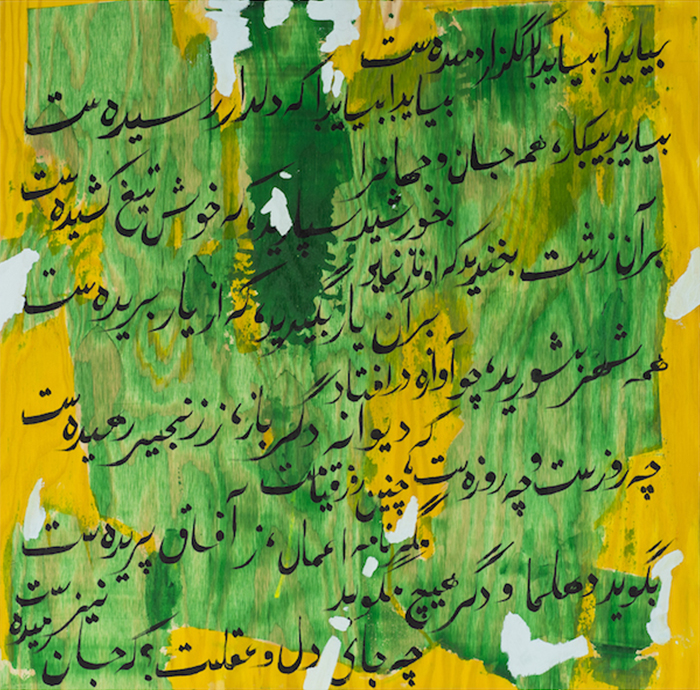 بیاید! بیاید! که گلزار دمیده ست
بیاید! بیاید! که دلدار رسیده ست
بیارید بیکبار، همه جان و جهانرا
بخورشید سپارید، که خوش تیغ کشیده ست
برآن زشت بخندید که او ناز نماید
برآن یار بگریید، که از یار بریده ست
همه شهر بشورید، چو آوازه درافتاد
که دیوانه دگر باز، ز زنجیر رهیده ست
چه روزست و چه روزه ست، چنین روز قیامت
مگر نامه اعمال، ز آفاق پریده ست
بگوید دهلها و دگر هیچ مگوید
چه جای دل و عقلست؟ که جان نیز رمیده ست